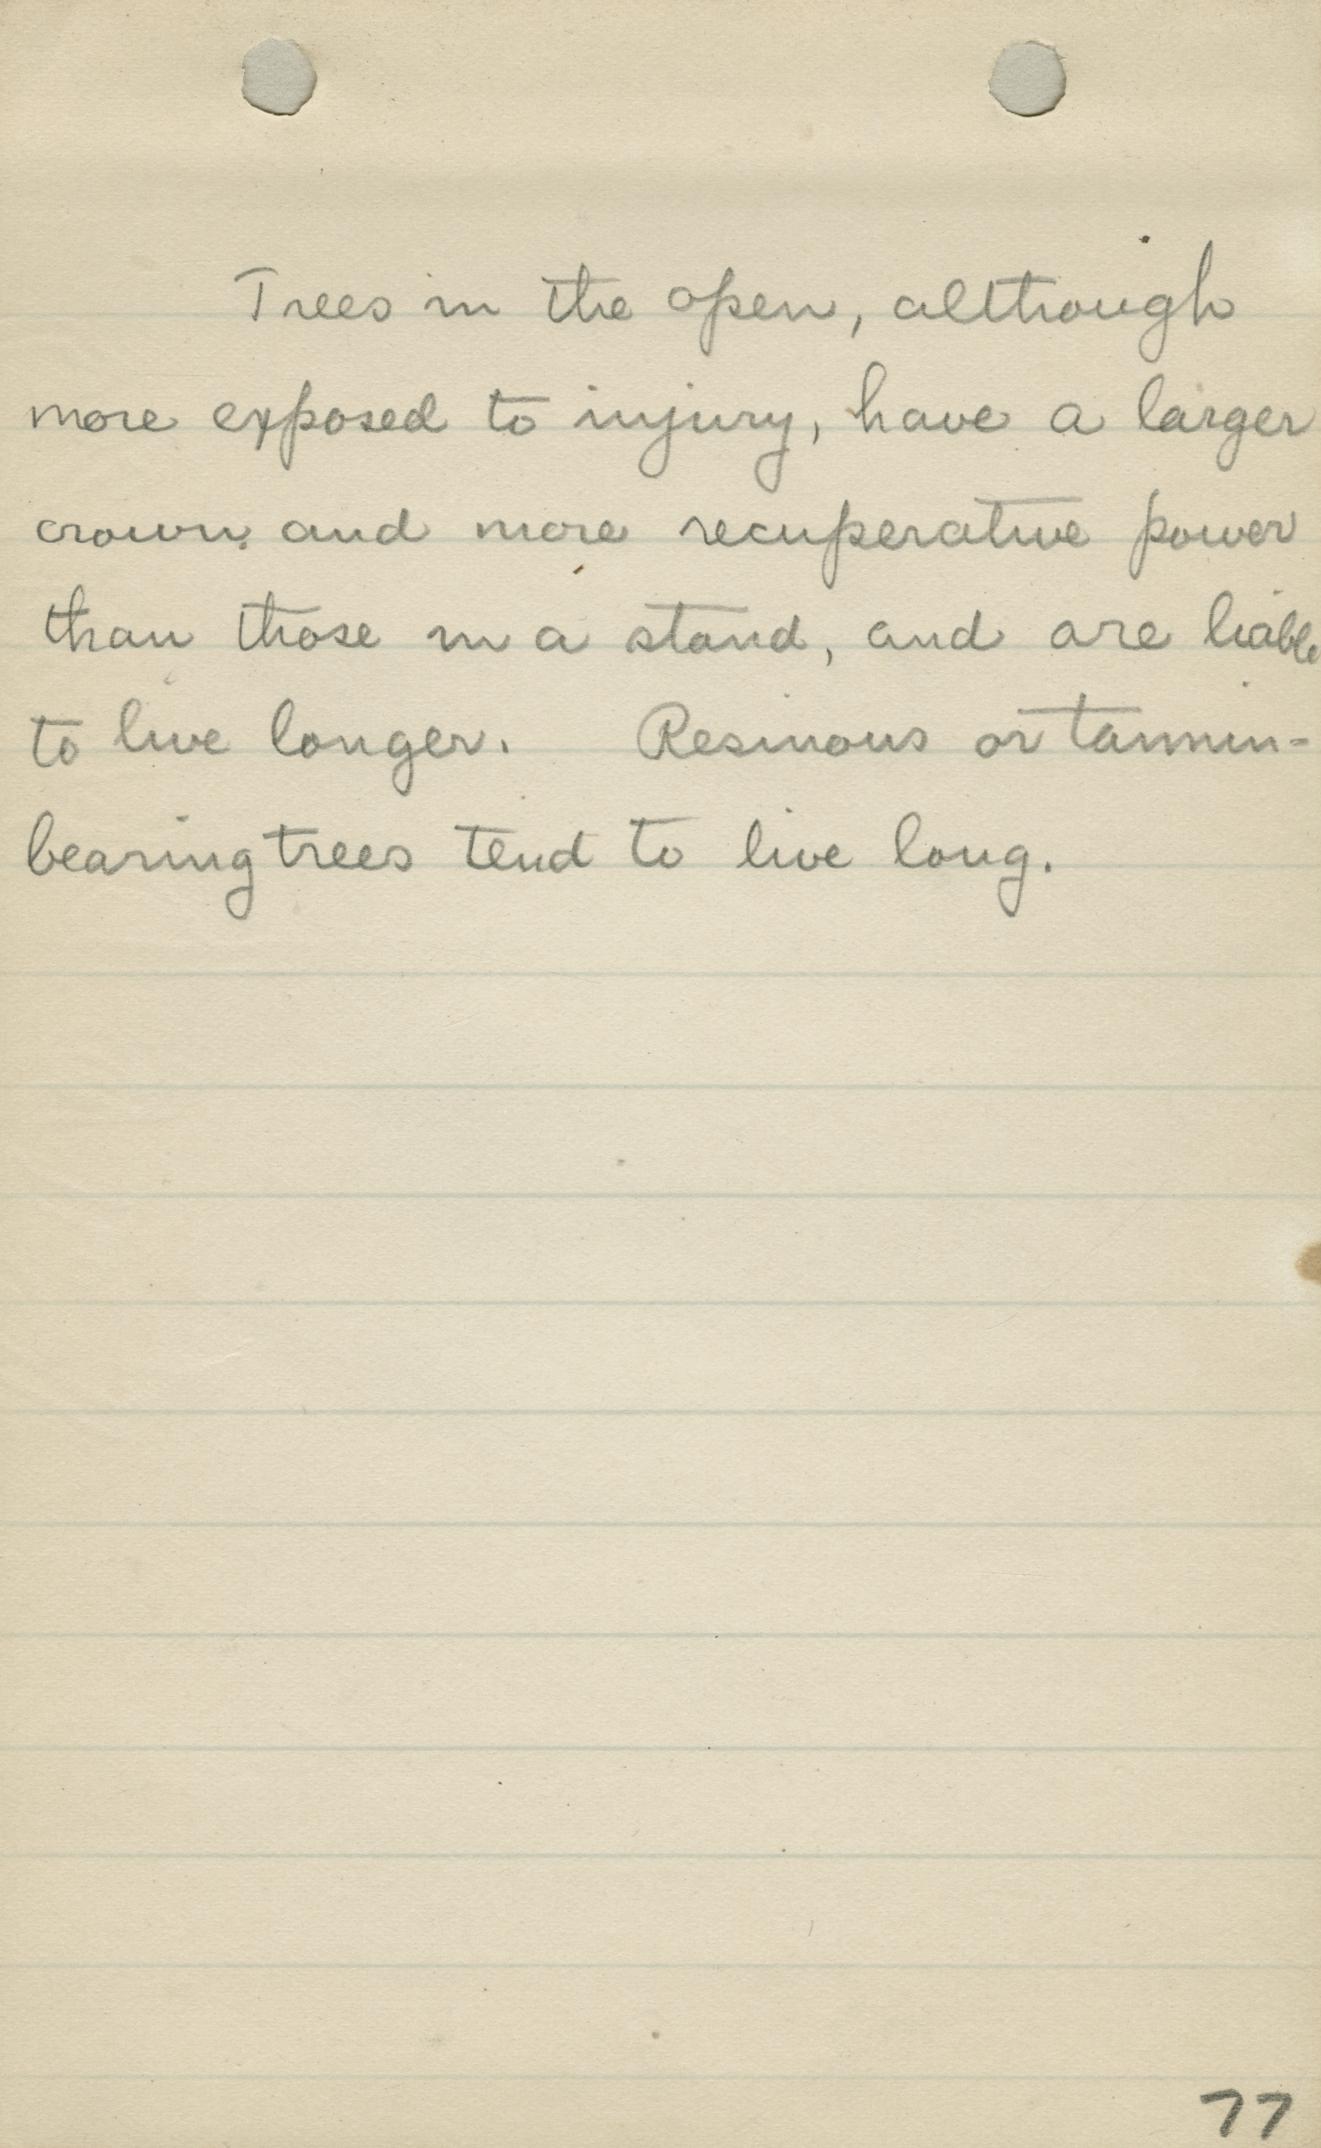 Trees in the open, although
more exposed to injury, have a larger
crown, and more recuperative power
than those in a stand, and are liable
to live longer. Resinous or tannin-
bearing trees tend to live long.
77